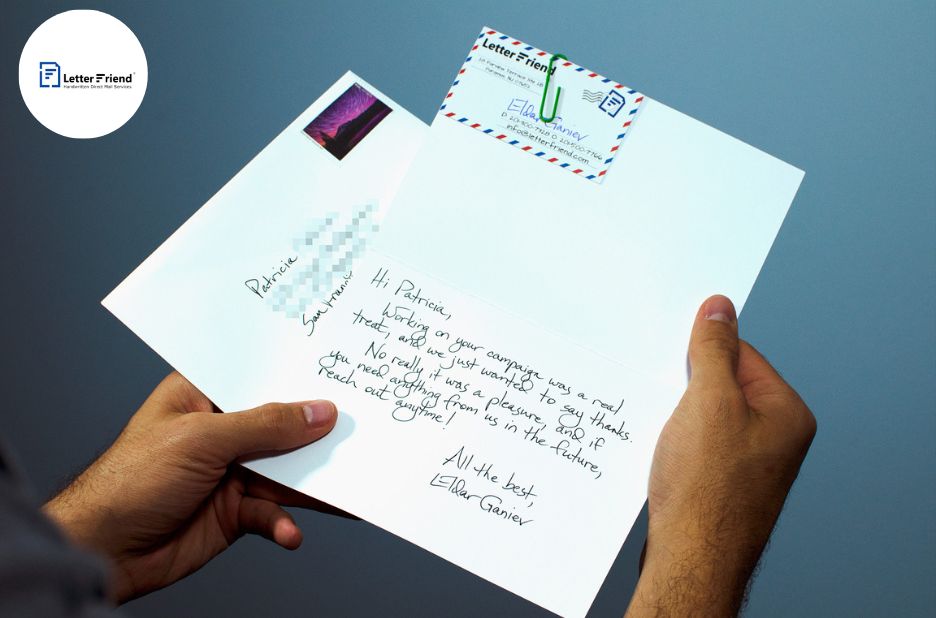 LetterFriend
Handwritten Direct Mail Services
LetterFriend
Eldar Ganiev
info@letterfriend.com
Patricia
San
Hi Patricia,
Working on your campaign was a real
treat, and we just wanted to say thanks.
No really it was a pleasure, and if
you need anything from us in the future,
reach out anytime!
All the best,
Eldar Ganiev